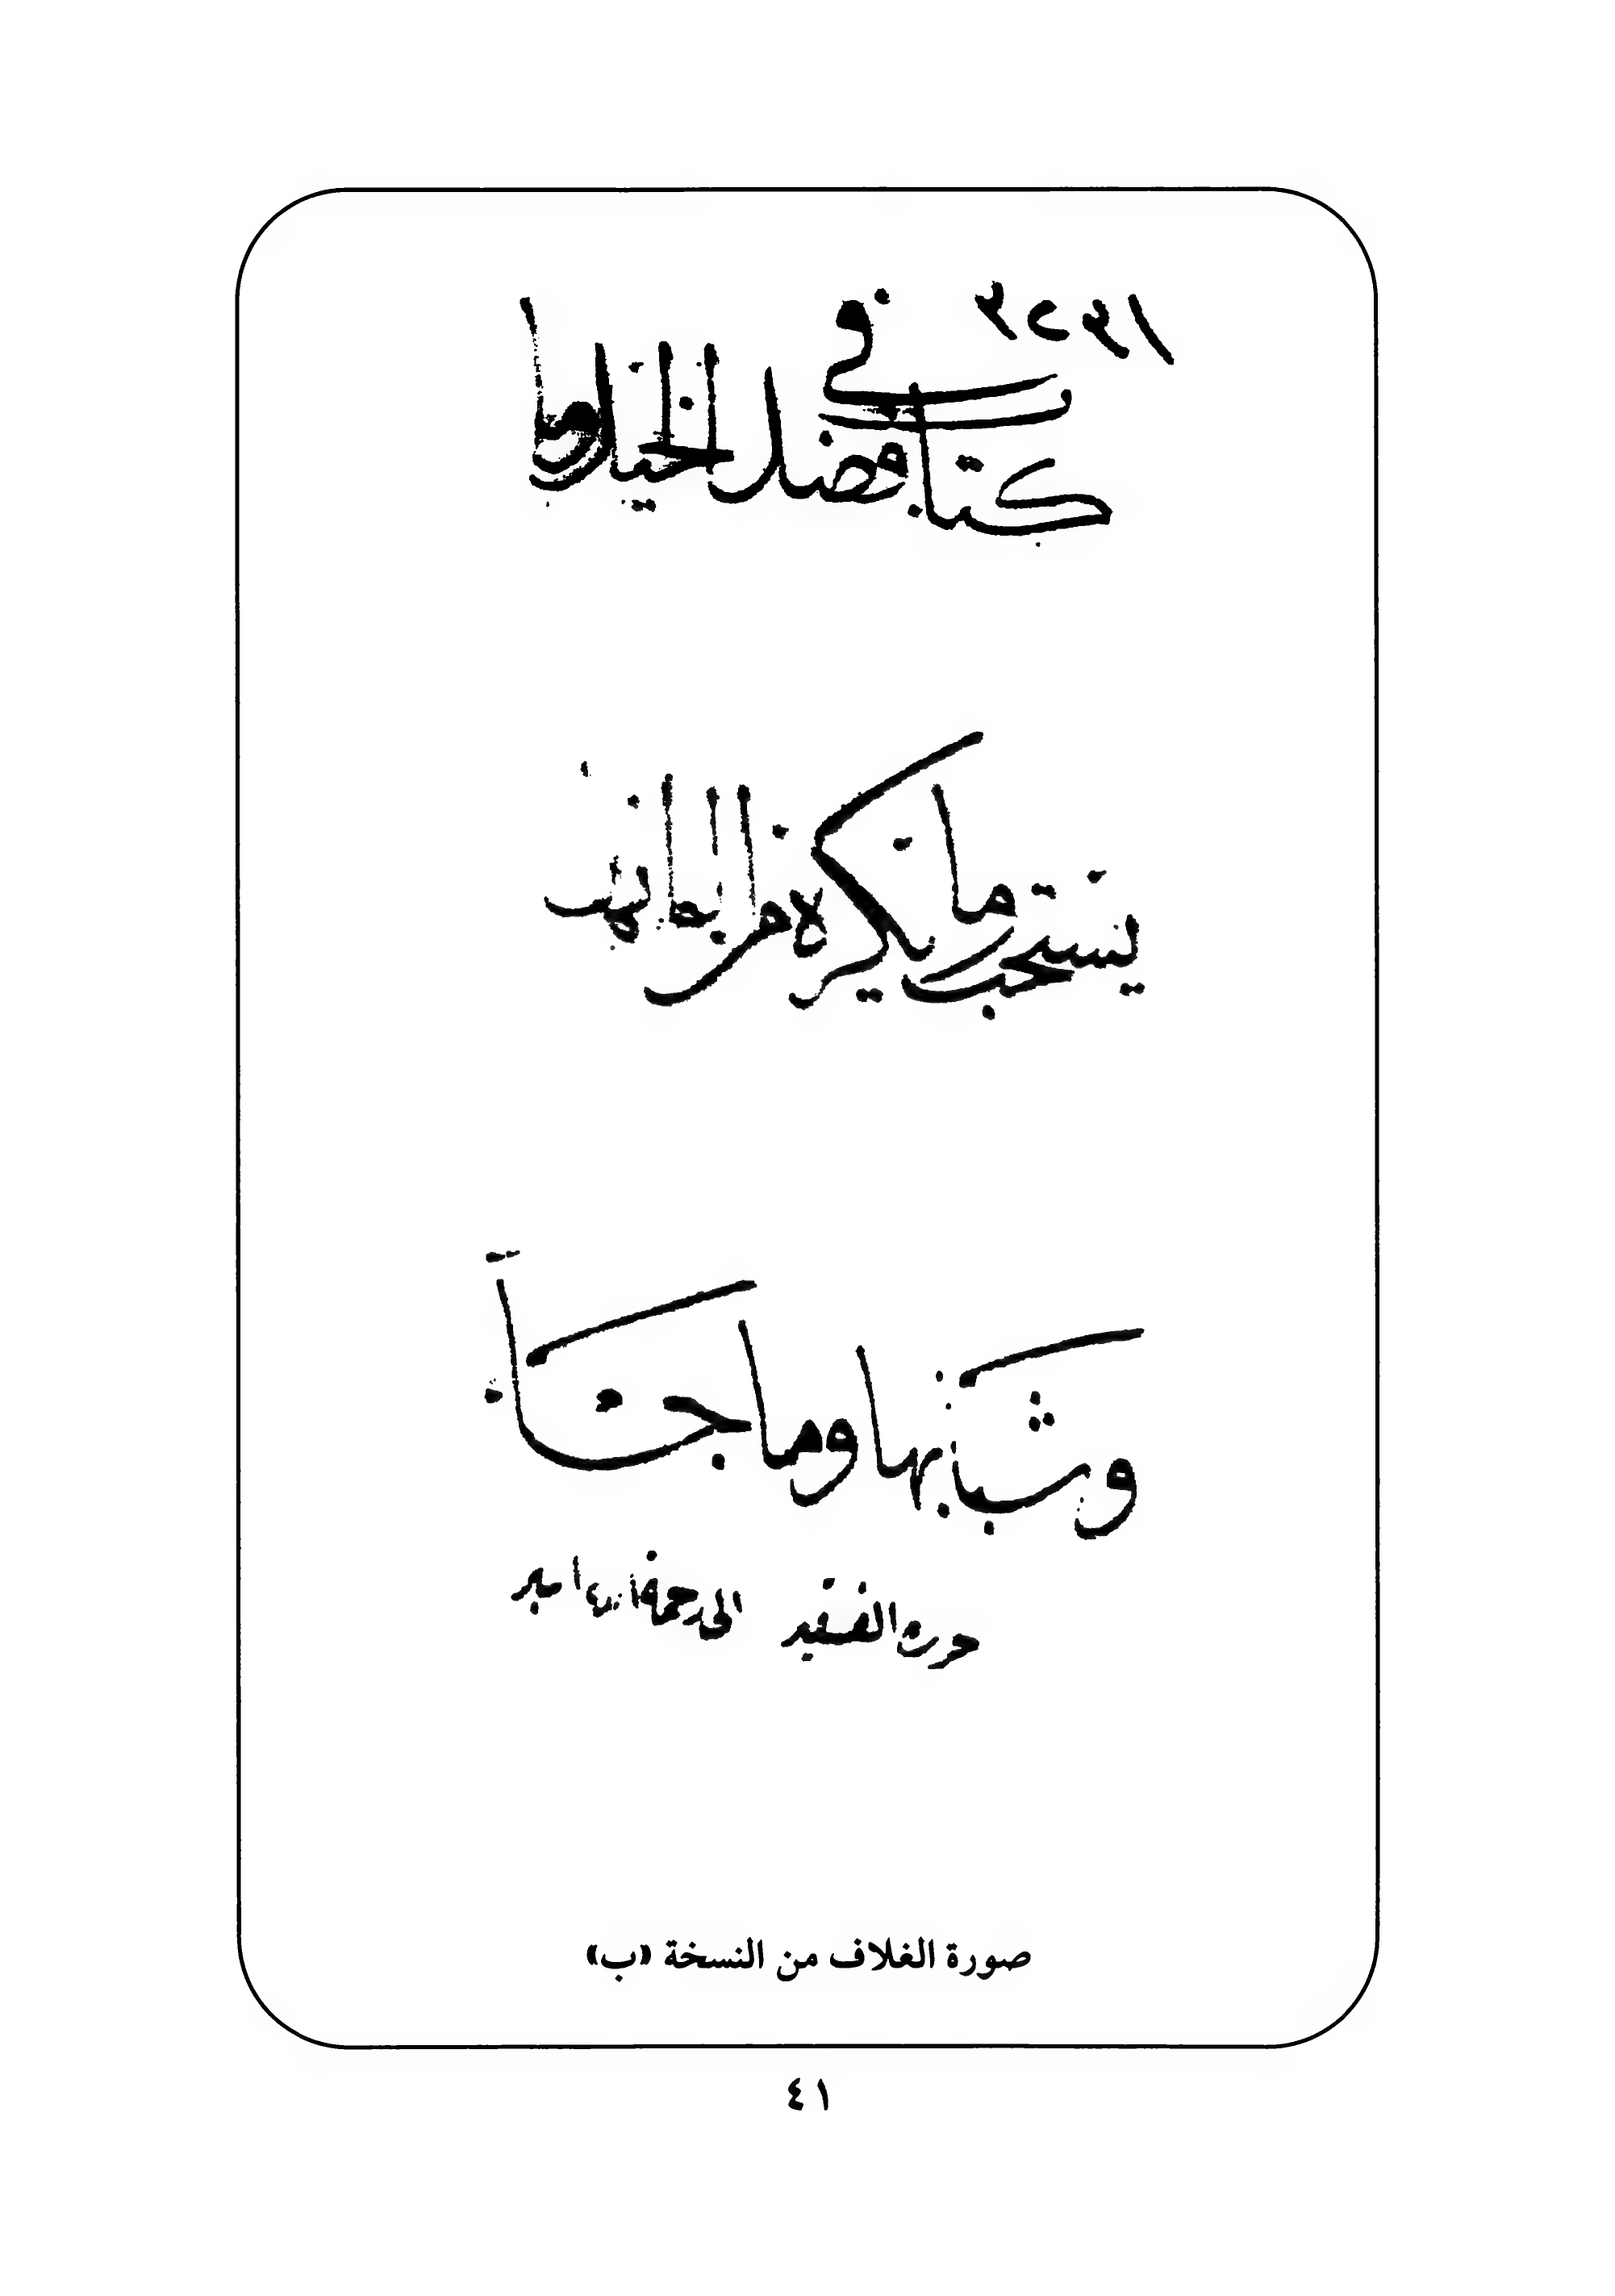 ٣٢٣١
كتاب في فضل الخيل وما
يستحب وما يكره من الوانها
وشياتها وما جاء
حرره الفقير الى رحمة
صورة الغلاف من النسخة «ب»
٤١